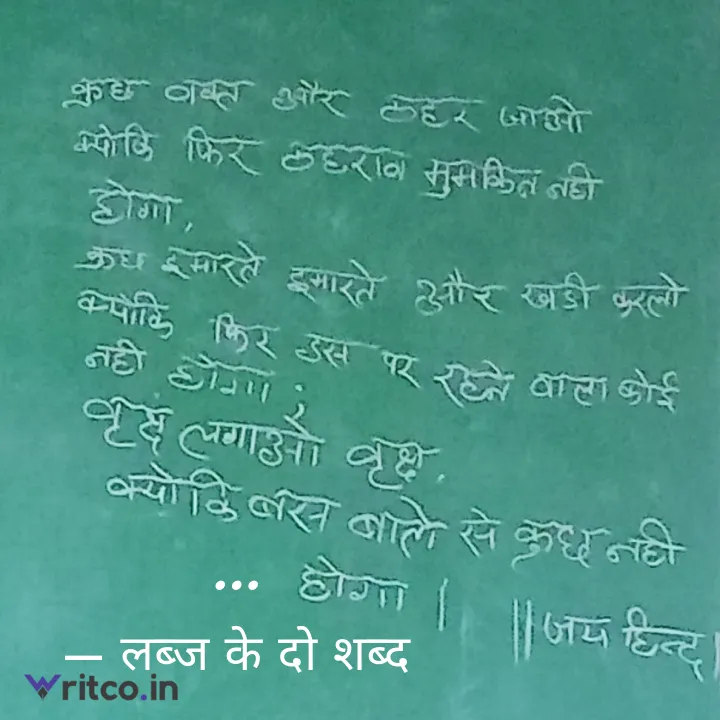 कुछ वक्त और ठहर जाओ
क्योकि फिर ठहराव मुमकित नही
होगा,
कुछ इमारते इमारते और खडी करलो
क्योकि फिर उस पर रहने वाला कोई
नही होगा;
वृक्ष लगाओ वृक्ष.
क्योकि बस बातो से कुछ नही
... होगा |
||जय हिन्द|
— लब्ज के दो शब्द
Writco.in